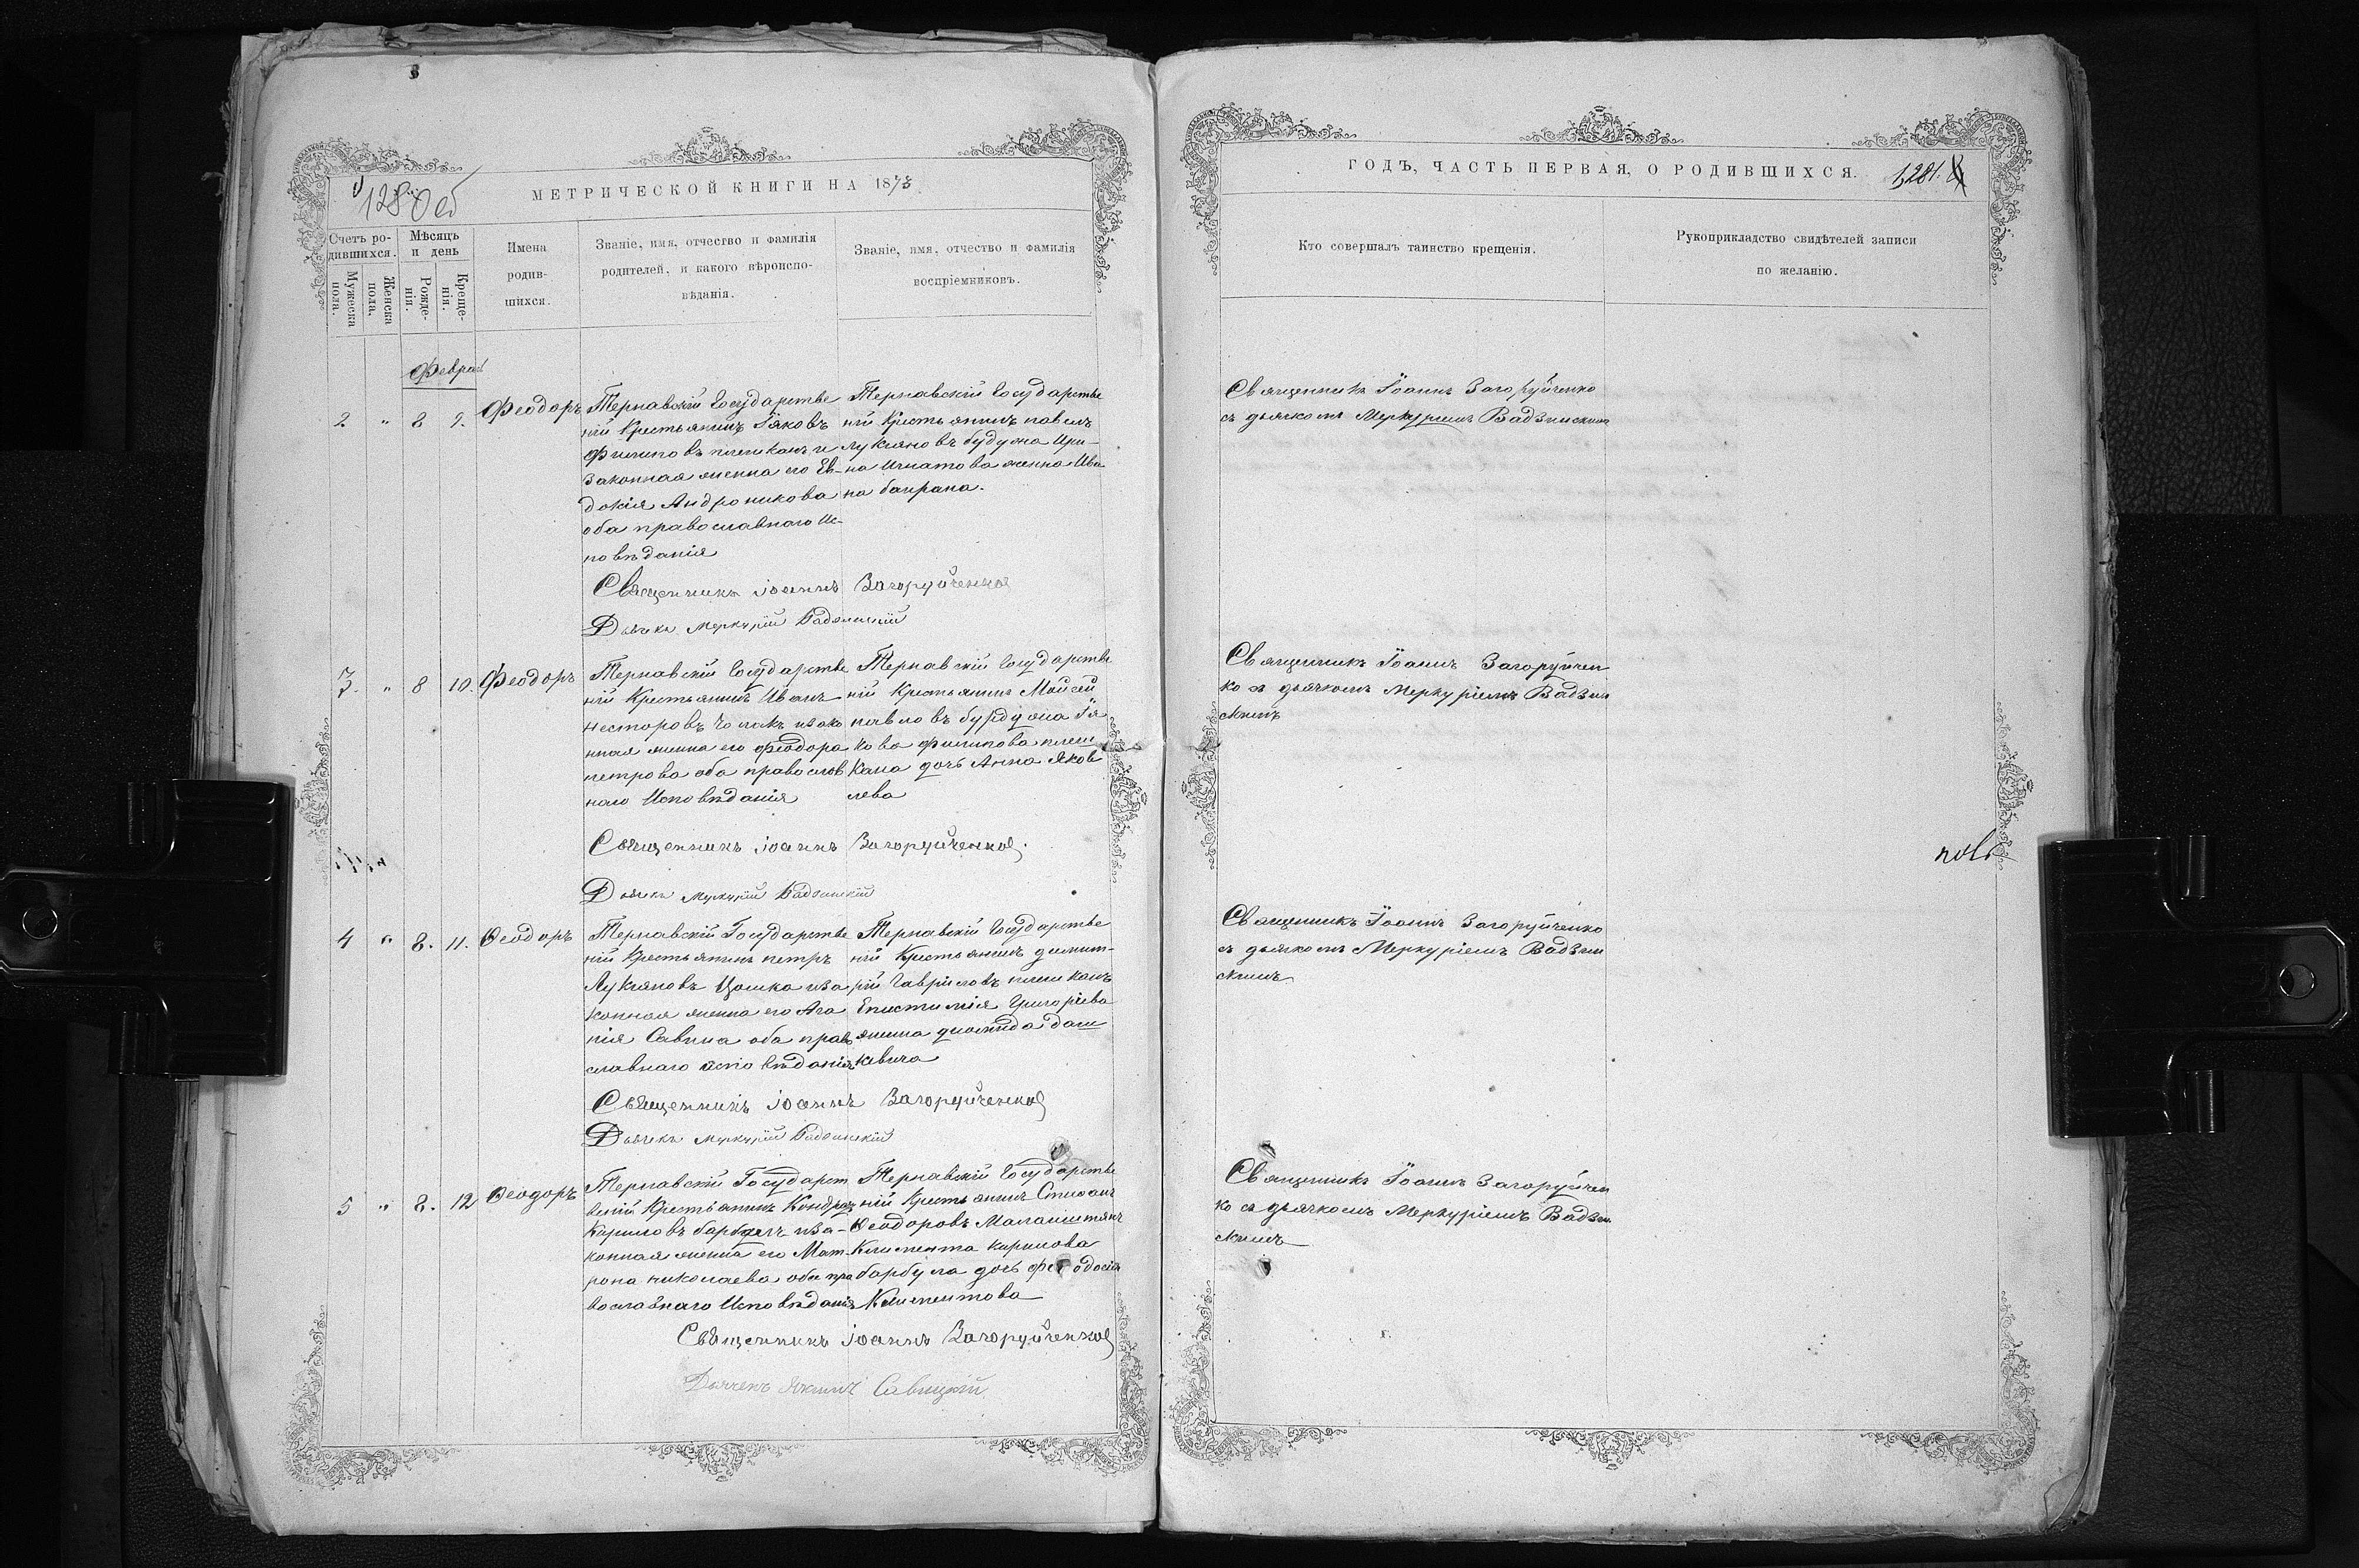 1280 об
МЕТРИЧЕСКОЙ КНИГИ НА 1873
Счетъ ро-
дившихся.
Мужеска
пола.
Женска
пола.
Мѣсяцъ
и день
Рожде-
нія.
Креще-
нія.
Имена
родив-
шихся.
Званіе, имя, отчество и фамилія
родителей, и какого вѣроиспо-
вѣданія.
Званіе, имя, отчество и фамилія
воспріемниковъ.
Феврал
2 " 8 9. Феодоръ
Тернавскій Государстве
ній Крестьянинъ Іяковъ
Филиповъ плешканъ и
Законная женна его Ев-
докія Андроникова
оба православного Ис-
повѣданія
Тернавскій Государстве
ній Крестьянинъ павелъ
Лукіяновъ будуяна Ири-
на Игнатова женна Ива
на баправа.
Священникъ іоаннъ Загоруйченко
Дьячекъ Меркурій Вадзинскій
3. " 8 10. Феодоръ
Тернавскій Государстве
ній Крестьянинъ Иванъ
несторовъ Чолакъ изако
нная женна его Феодора
петрова оба православ
наго Исповѣданія
Тернавскій Государстве
ній Крестьянинъ Мойсей
павловъ бурдужа Ія
кова филипова плеш
кана дочь Анна Яков
лева
Священникъ іоаннъ Загоруйченко.
Дьячекъ Меркурій Вадзинскій
4 " 8. 11. Ѳеодоръ
Тернавскій Государстве
ній Крестьянинъ петръ
Лукіяновъ Цошка иза
конная женна его Ага
пія Савина оба право
славнаго исповѣданія
Тернавскій Государстве
ній Крестьянинъ димит-
рій Гавриловъ плешканъ
Епистимія Григоріева
женна диомида даш
кевича
Священникъ іоаннъ Загоруйченко
Дьячекъ Меркурій Вадзинскій
5 " 8. 12 Ѳеодоръ
Тернавскій Государст
веній Крестьянинъ Кондрад
Кириловъ барбулъ иза-
конная женна его Мат-
рона николаева оба пра
вославнаго Исповѣданія
Тернавскій Государстве
ній Крестьянинъ Стефанъ
Ѳеодоровъ Малаиштянъ
Климента кирилова
барбула дочь феодосія
Климентова
Священникъ іоаннъ Загоруйченко
Дьячекъ Савицкій
ГОДЪ, ЧАСТЬ ПЕРВАЯ, О РОДИВШИХСЯ.
1,281.
Кто совершалъ таинство крещенія.
Рукоприкладство свидѣтелей записи
по желанію.
Священникъ Іоаннъ Загоруйченко
съ дьячкомъ Меркуріемъ Вадзинскимъ
Священникъ Іоаннъ Загоруйчен
ко съ дьячкомъ Меркуріемъ Вадзин
скимъ
Священникъ Іоаннъ Загоруйченко
съ дьячкомъ Меркуріемъ Вадзин
скимъ
Священникъ Іоаннъ Загоруйчен
ко съ дьячкомъ Меркуріемъ Вадзин
скимъ